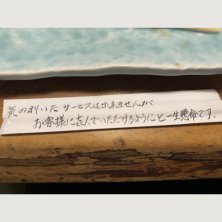 気の利いたサービスは出来ませんが
お客様に喜んでいただけるようにと一生懸命です。